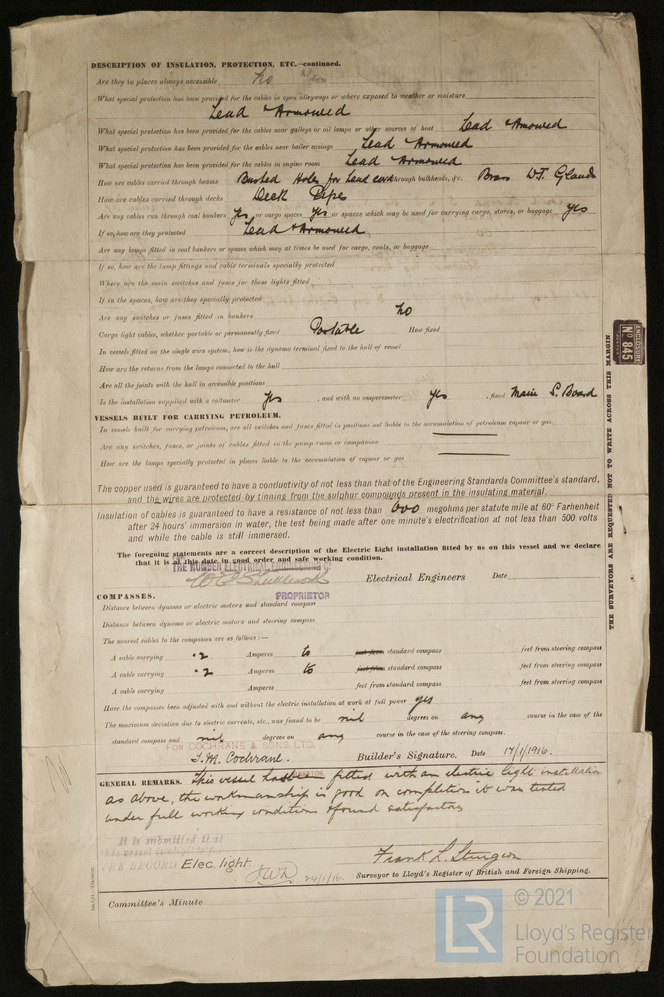 DESCRIPTION OF INSULATION, PROTECTION, ETC.—continued.
Are they in places always accessible no
What special protection has been provided for the cables in open alleyways or where exposed to weather or moisture
Lead & Armoured
What special protection has been provided for the cables near galleys or oil lamps or other sources of heat Lead & Armoured
What special protection has been provided for the cables near boiler casings Lead & Armoured
What special protection has been provided for the cables in engine room Lead & Armoured
How are cables carried through beams Bushed Holes for Lead cord through bulkheads, &c. Brass W.T. Glands
How are cables carried through decks Deck Pipes
Are any cables run through coal bunkers yes or cargo spaces yes or spaces which may be used for carrying cargo, stores, or baggage yes
If so, how are they protected Lead & Armoured
Are any lamps fitted in coal bunkers or spaces which may at times be used for cargo, coals, or baggage
If so, how are the lamp fittings and cable terminals specially protected
Where are the main switches and fuses for these lights fitted
If in the spaces, how are they specially protected
Are any switches or fuses fitted in bunkers no
Cargo light cables, whether portable or permanently fixed Portable How fixed
In vessels fitted on the single wire system, how is the dynamo terminal fixed to the hull of vessel
How are the returns from the lamps connected to the hull
Are all the joints with the hull in accessible positions
Is the installation supplied with a voltmeter yes, and with an amperemeter yes, fixed Main S. Board
VESSELS BUILT FOR CARRYING PETROLEUM.
In vessels built for carrying petroleum, are all switches and fuses fitted in positions not liable to the accumulation of petroleum vapour or gas
Are any switches, fuses, or joints of cables fitted in the pump room or companion
How are the lamps specially protected in places liable to the accumulation of vapour or gas
The copper used is guaranteed to have a conductivity of not less than that of the Engineering Standards Committee's standard,
and the wires are protected by tinning from the sulphur compounds present in the insulating material.
Insulation of cables is guaranteed to have a resistance of not less than 600 megohms per statute mile at 60° Farhenheit
after 24 hours' immersion in water, the test being made after one minute's electrification at not less than 500 volts
and while the cable is still immersed.
The foregoing statements are a correct description of the Electric Light installation fitted by us on this vessel and we declare
that it is at this date in good order and safe working condition.
THE HUMBER ELECTRICAL ENGINEERING CO
Electrical Engineers Date
PROPRIETOR
COMPASSES.
Distance between dynamo or electric motors and standard compass
Distance between dynamo or electric motors and steering compass
The nearest cables to the compasses are as follows:—
A cable carrying .2 Amperes to feet from standard compass feet from steering compass
A cable carrying .2 Amperes to feet from standard compass feet from steering compass
A cable carrying Amperes feet from standard compass feet from steering compass
Have the compasses been adjusted with and without the electric installation at work at full power yes
The maximum deviation due to electric currents, etc., was found to be nil degrees on any course in the case of the
standard compass and nil degrees on any course in the case of the steering compass.
FOR COCHRANE & SONS LTD.
T.M. Cochrane. Builder's Signature. Date 17/1/1916.
GENERAL REMARKS. This vessel has been fitted with an electric light installation
as above, the workmanship is good on completion it was tested
under full working conditions & found satisfactory
It is submitted that
this vessel is eligible for
THE RECORD Elec. light
Frank L. Sturgeon
24/1/16. Surveyor to Lloyd's Register of British and Foreign Shipping.
Committee's Minute
THE SURVEYORS ARE REQUESTED NOT TO WRITE ACROSS THIS MARGIN
ENCLOSURE
No 845
LR
© 2021
Lloyd's Register
Foundation